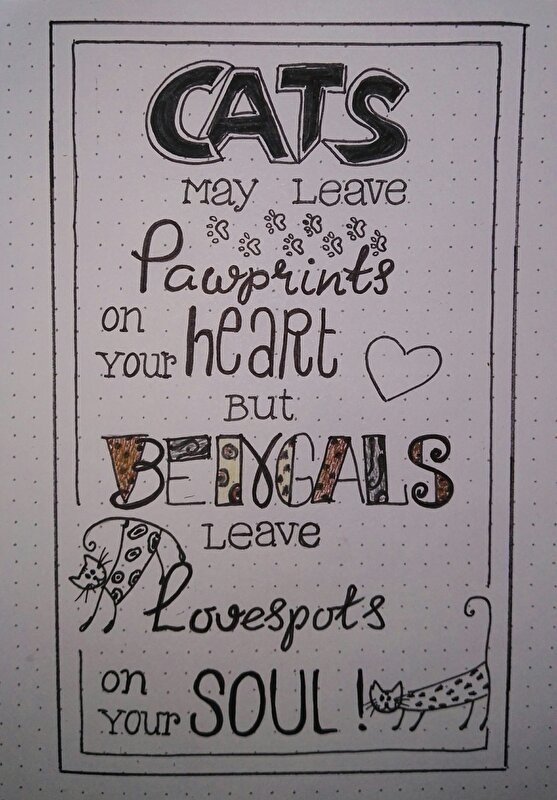 CATS
MAY LEAVE
Pawprints
on
your heart
BUT
BENGALS
LEAVE
Lovespots
on
your SOUL!